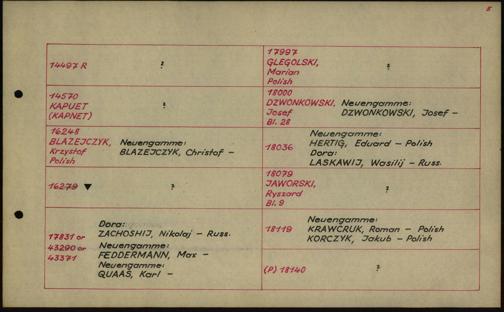 5
14497 R ?
14570
KAPUET
(KAPNET) ?
16248
BLAZEJCZYK,
Krzysztof
Polish
Neuengamme:
BLAZEJCZYK, Christof –
16279 ▼ ?
17831 or
43290 or
43371
Dora:
ZACHOSHIJ, Nikolaj – Russ.
Neuengamme:
FEDDERMANN, Max –
Neuengamme:
QUAAS, Karl –
17997
GLEGOLSKI,
Marian
Polish ?
18000
DZWONKOWSKI,
Josef
Bl. 28
Neuengamme:
DZWONKOWSKI, Josef –
18036
Neuengamme:
HERTIG, Eduard – Polish
Dora:
LASKAWIJ, Wasilij – Russ.
18079
JAWORSKI,
Ryszard
Bl. 9 ?
18119
Neuengamme:
KRAWCRUK, Roman – Polish
KORCZYK, Jakub – Polish
(P) 18140 ?